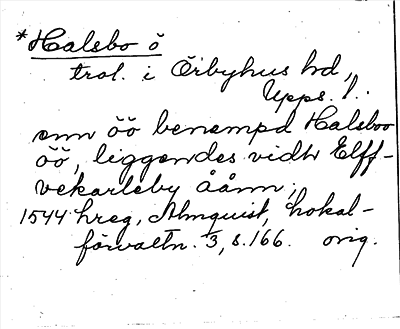 *Halsbo ö
trol. i Örbyhus hd,
Upps. l.
enn öö benempd Halsboo
öö, liggendes vidh Elff-
vekarleby åånn,
1544 hreg, Almquist, Lokal-
förvaltn. 3, s. 166. orig.